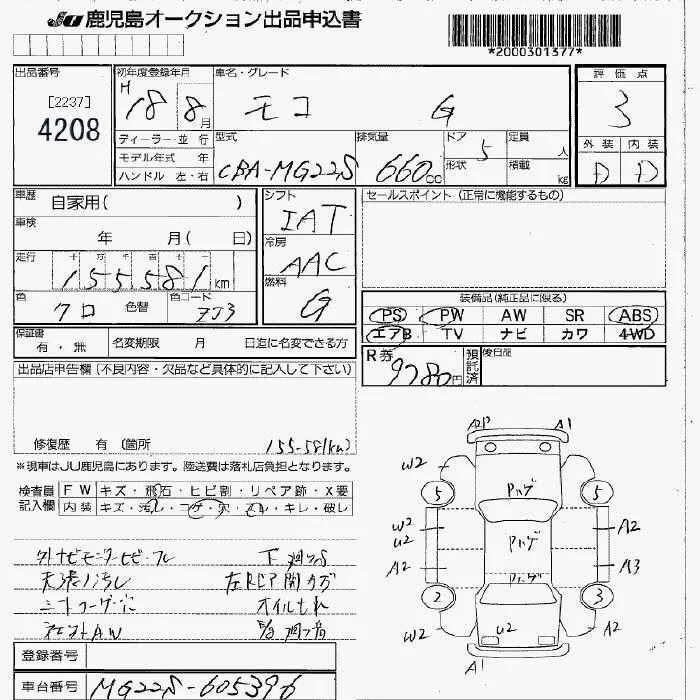 JU 鹿児島オークション出品申込書
*2000301377*
出品番号
[2237]
4208
初年度登録年月
H 18 8月
車名・グレード
モコ G
評価点
3
外装 内装
D D
ディーラー・並行
モデル年式 年
ハンドル 左・右
型式
CBA-MG22S
排気量
660cc
ドア 5
形状
定員 人
積載 kg
車歴 自家用( )
車検 年 月( 日)
走行 十 万 千 百 十 一
155581km
色 クロ 色替
色コード ZJ3
シフト
IAT
冷房
AAC
燃料
G
セールスポイント(正常に機能するもの)
装備品(純正品に限る)
PS PW AW SR ABS
エアB TV ナビ カワ 4WD
保証書
有・無
名変期限 月 日迄に名変できる方
R券 9780円
預託済
後日品
出品店申告欄(不良内容・欠品など具体的に記入して下さい)
修復歴 有(箇所
155581(km)
※現車はJU鹿児島にあります。陸送費は落札店負担となります。
検査員記入欄
FW キズ・飛石・ヒビ割・リペア跡・X要
内装 キズ・汚れ・コゲ・穴・スレ・キレ・破レ
外ナビモニターヒビ・フレ
天張り汚れ
シートコーゲ・穴
社外AW
下廻りS
左Rドア開カズ
オイルもれ
A2P A1
W2
Pハゲ
5 5
W2
U2
A2
Pハゲ
A2
A3
Pハゲ
2 3
W2
U2
A2
A1
登録番号
車台番号 MG22S-605396